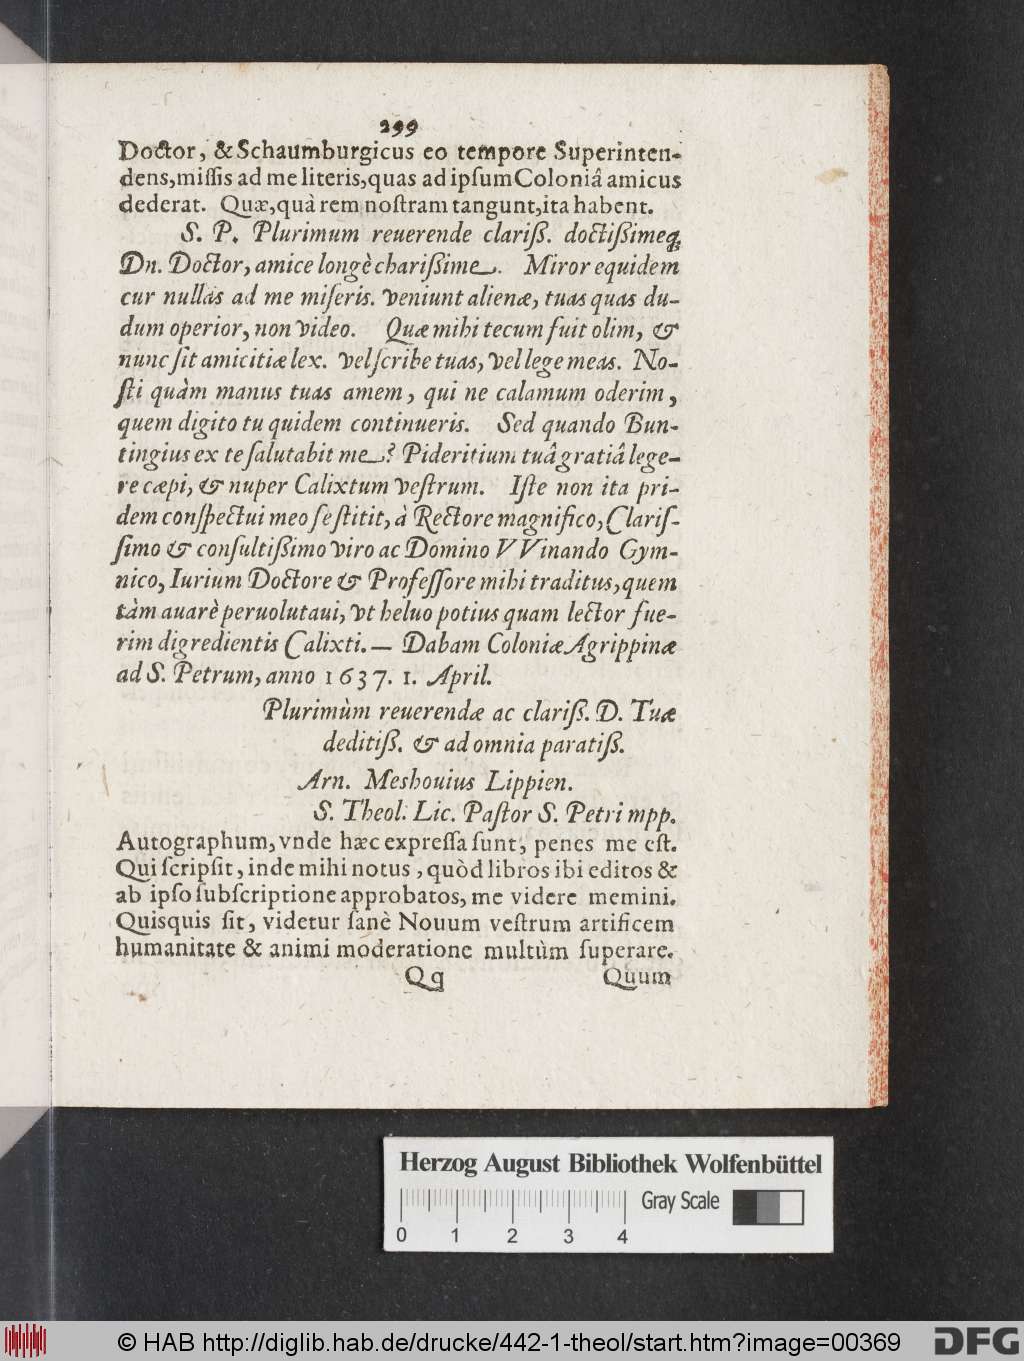 299
Doctor, & Schaumburgicus eo tempore Superinten-
dens, missis ad me literis, quas ad ipsum Coloniâ amicus
dederat. Quæ, quà rem nostram tangunt, ita habent.
S. P. Plurimum reuerende clariß. doctißimeq;
Dn. Doctor, amice longè charißime. Miror equidem
cur nullas ad me miseris. veniunt alienæ, tuas quas du-
dum operior, non video. Quæ mihi tecum fuit olim, &
nunc sit amicitiæ lex. vel scribe tuas, vel lege meas. No-
sti quàm manus tuas amem, qui ne calamum oderim,
quem digito tu quidem continueris. Sed quando Bun-
tingius ex te salutabit me? Pideritium tuâ gratiâ lege-
re cæpi, & nuper Calixtum vestrum. Iste non ita pri-
dem conspectui meo se stitit, à Rectore magnifico, Claris-
simo & consultißimo viro ac Domino VVinando Gym-
nico, Iurium Doctore & Professore mihi traditus, quem
tàm auarè peruolutaui, vt heluo potius quam lector fue-
rim digredientis Calixti. — Dabam Coloniæ Agrippinæ
ad S. Petrum, anno 1637. 1. April.
Plurimùm reuerendæ ac clariß. D. Tuæ
deditiß. & ad omnia paratiß.
Arn. Meshouius Lippien.
S. Theol. Lic. Pastor S. Petri mpp.
Autographum, vnde hæc expressa sunt, penes me est.
Qui scripsit, inde mihi notus, quòd libros ibi editos &
ab ipso subscriptione approbatos, me videre memini.
Quisquis sit, videtur sanè Nouum vestrum artificem
humanitate & animi moderatione multùm superare.
Qq Quum
Herzog August Bibliothek Wolfenbüttel
Gray Scale
0 1 2 3 4
© HAB http://diglib.hab.de/drucke/442-1-theol/start.htm?image=00369
DFG